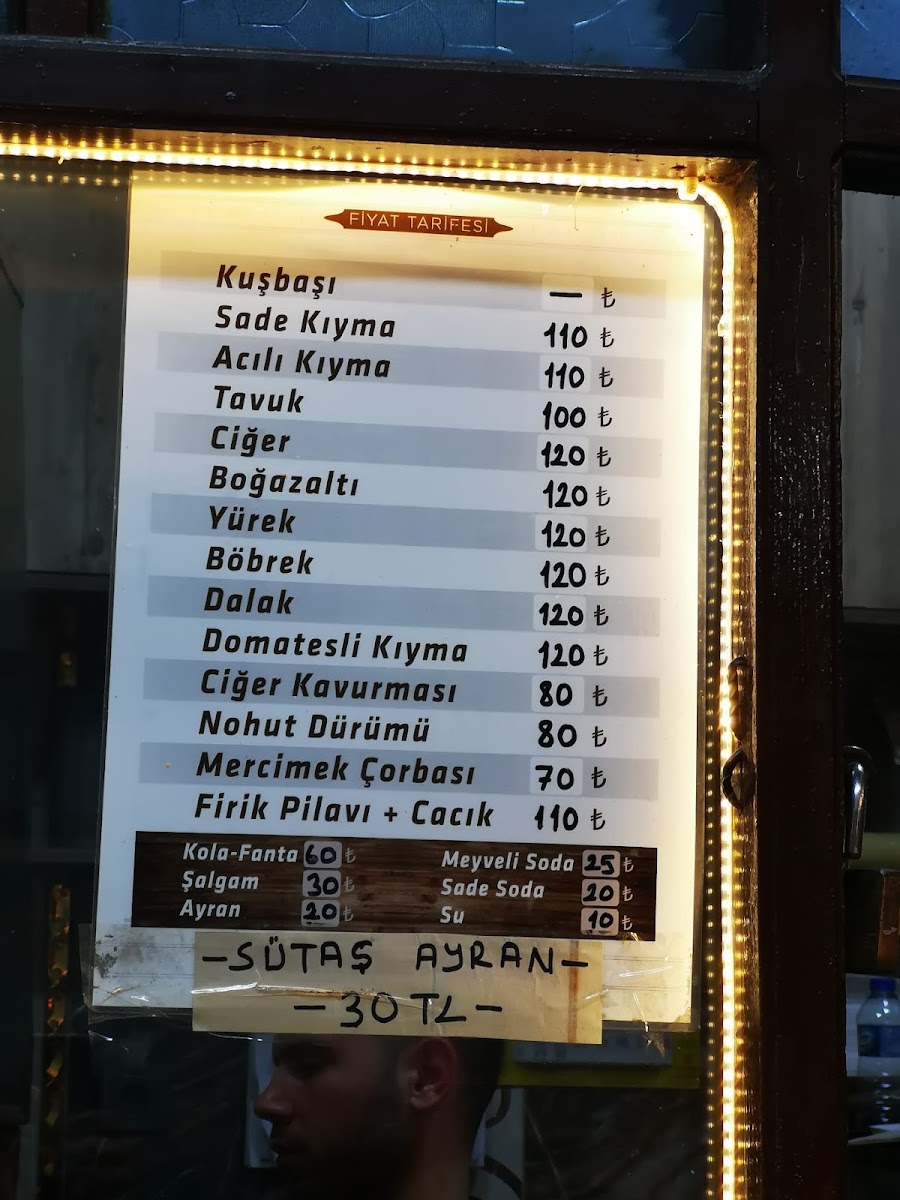 FİYAT TARİFESİ
Kuşbaşı — ₺
Sade Kıyma 110 ₺
Acılı Kıyma 110 ₺
Tavuk 100 ₺
Ciğer 120 ₺
Boğazaltı 120 ₺
Yürek 120 ₺
Böbrek 120 ₺
Dalak 120 ₺
Domatesli Kıyma 120 ₺
Ciğer Kavurması 80 ₺
Nohut Dürümü 80 ₺
Mercimek Çorbası 70 ₺
Firik Pilavı + Cacık 110 ₺
Kola-Fanta 60 ₺ Meyveli Soda 25 ₺
Şalgam 30 ₺ Sade Soda 20 ₺
Ayran 20 ₺ Su 10 ₺
—SÜTAŞ AYRAN—
—30 TL—